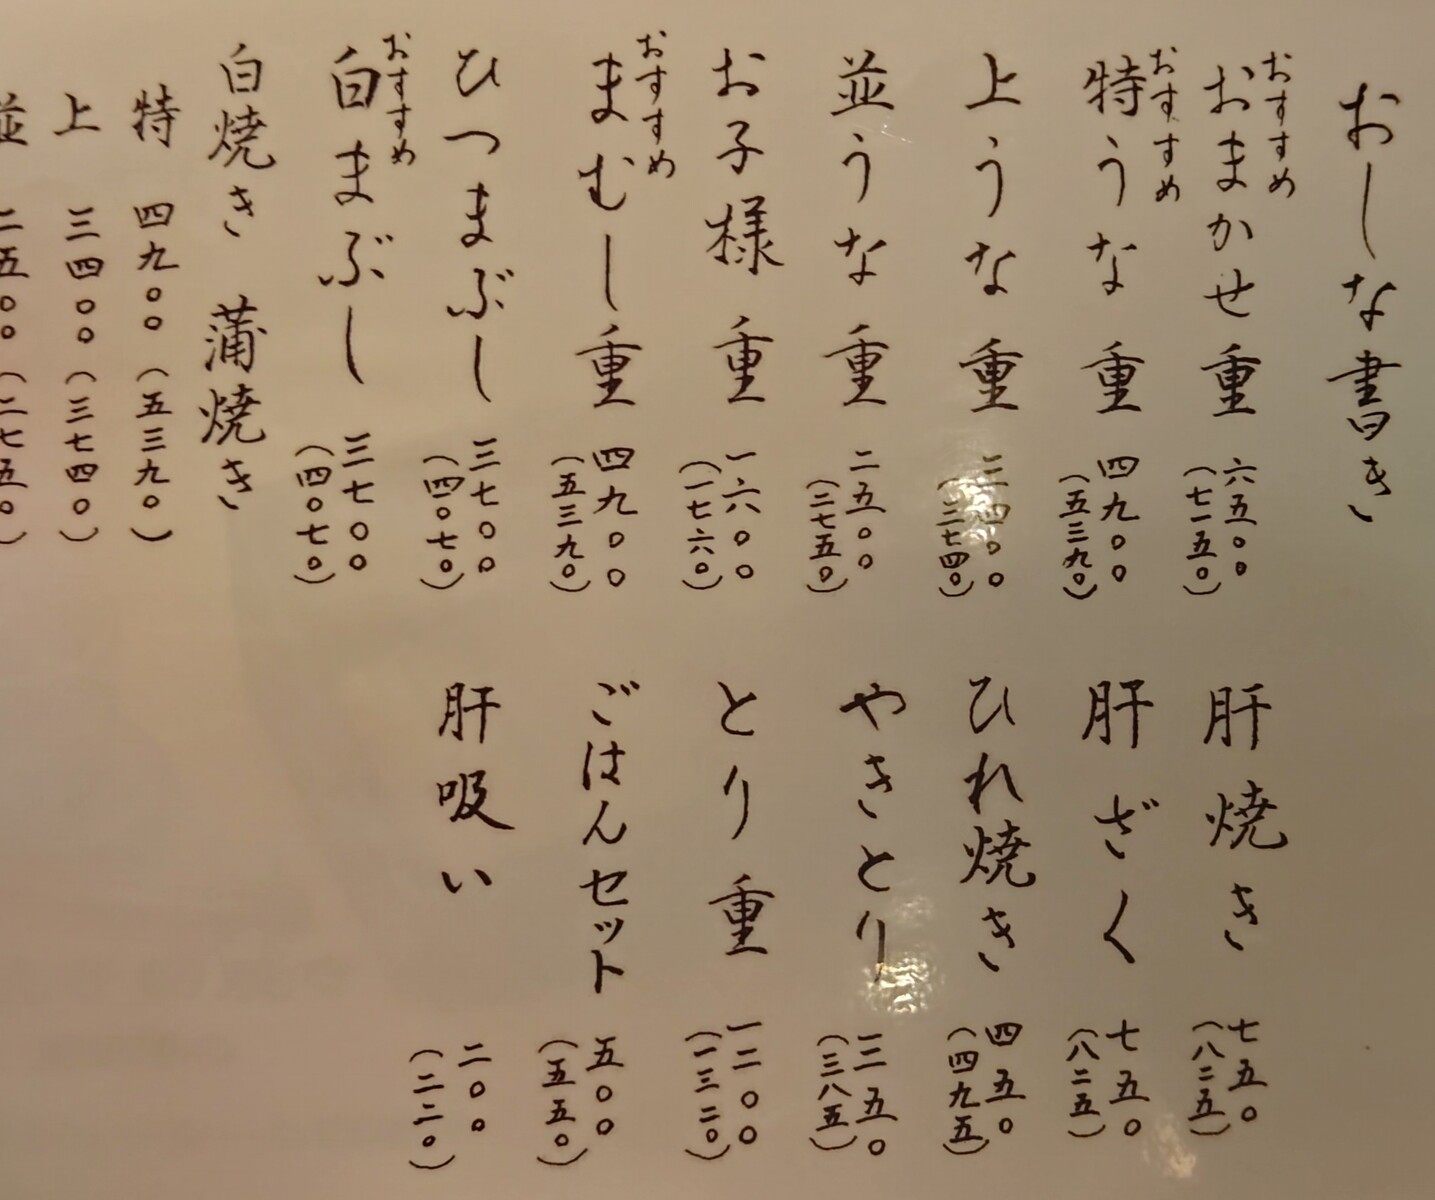 おしな書き
おすすめ
おまかせ重 六五〇〇
(七一五〇)
おすすめ
特うな重 四九〇〇
(五三九〇)
上うな重 三四〇〇
(三七四〇)
並うな重 二五〇〇
(二七五〇)
お子様重 一六〇〇
(一七六〇)
おすすめ
まむし重 四九〇〇
(五三九〇)
ひつまぶし 三七〇〇
(四〇七〇)
おすすめ
白まぶし 三七〇〇
(四〇七〇)
白焼き 蒲焼き
特 四九〇〇(五三九〇)
上 三四〇〇(三七四〇)
並 二五〇〇(二七五〇)
肝焼き 七五〇
(八二五)
肝ざく 七五〇
(八二五)
ひれ焼き 四五〇
(四九五)
やきとり 三五〇
(三八五)
とり重 一二〇〇
(一三二〇)
ごはんセット 五〇〇
(五五〇)
肝吸い 二〇〇
(二二〇)